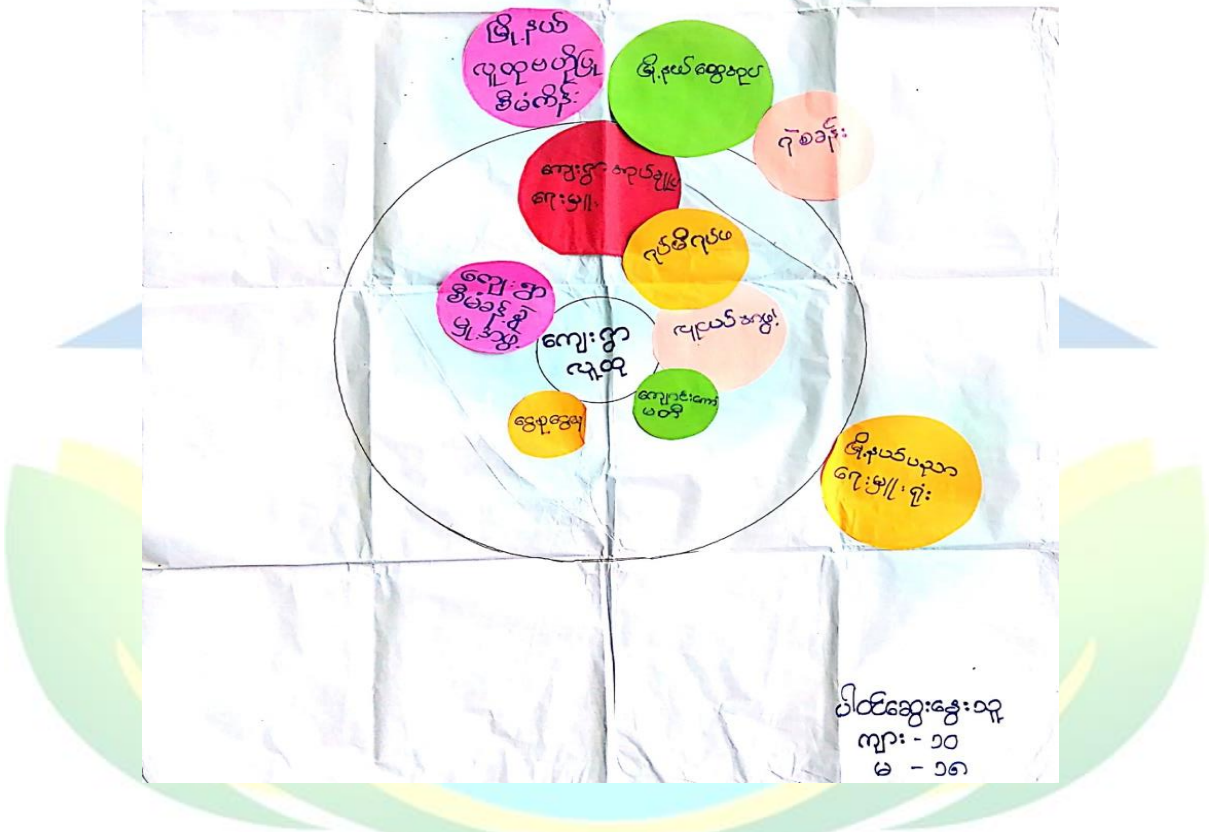 မြို့နယ်
လူထုဗဟိုပြု
စီမံကိန်း
မြို့နယ်ထွေအုပ်
ရဲစခန်း
ကျေးရွာအုပ်ချုပ်
ရေးမှူး
ရပ်မိရပ်ဖ
ကျေးရွာ
စီမံခန့်ခွဲ
မှု့အဖွဲ့
လူငယ်အဖွဲ့
ကျေးရွာ
လူထု
ကျောင်းကော်
မတီ
ငွေစုငွေချေး
မြို့နယ်ပညာ
ရေးမှူးရုံး
ပါဝင်ဆွေးနွေးသူ
ကျား - ၁၀
မ - ၁၈